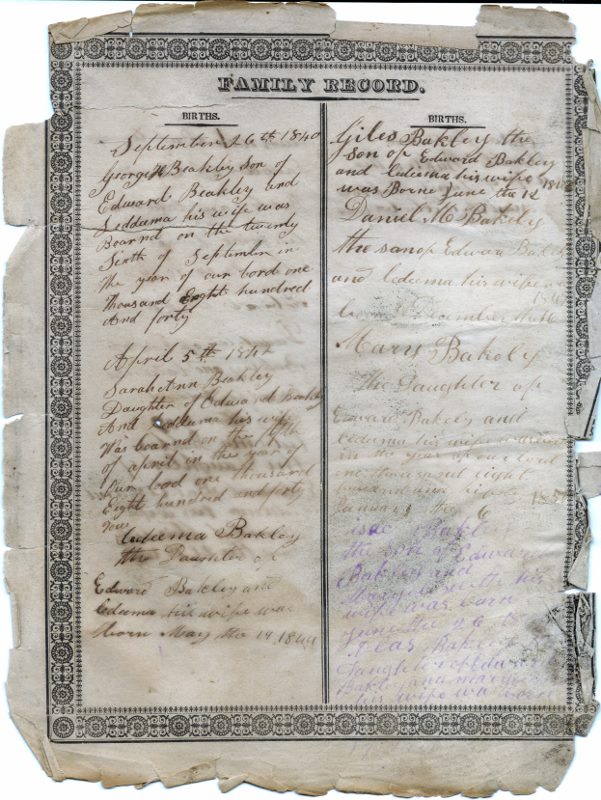 FAMILY RECORD.
BIRTHS.
September 26th 1840
George Beakley Son of
Edward Beakley And
Ledduma his wife was
Boarnd on the twenty
Sixth of September in
the year of our Lord one
thousand Eight hundred
And forty
April 5th 1842
Sarah Ann Beakley
Daughter of Edward Beakley
And Ledduma his wife
Was boarnd on the
of april in the year of
Our Lord one thousand
Eight hundred and forty
Ledeema Bakley
the Daughter of
Edward Bakley and
Ledeema his wife was
Born May the 19 1844
BIRTHS.
Giles Bakley the
Son of Edward Bakley
and Ledeema his wife
was Borne June the 12
Daniel M Bakely
the son of Edward Bakely
and Ledeema his wife
December the 16
Mary Bakely
the Daughter of
Edward Bakely and
Ledeema his wife
in the year of our Lord
one thousand eight
January the 6
isac Bakl
the son of Edward
Bakley and
his
wife was born
June the 26
Bakley
Daughter of Edward
Bakley and
his wife was born